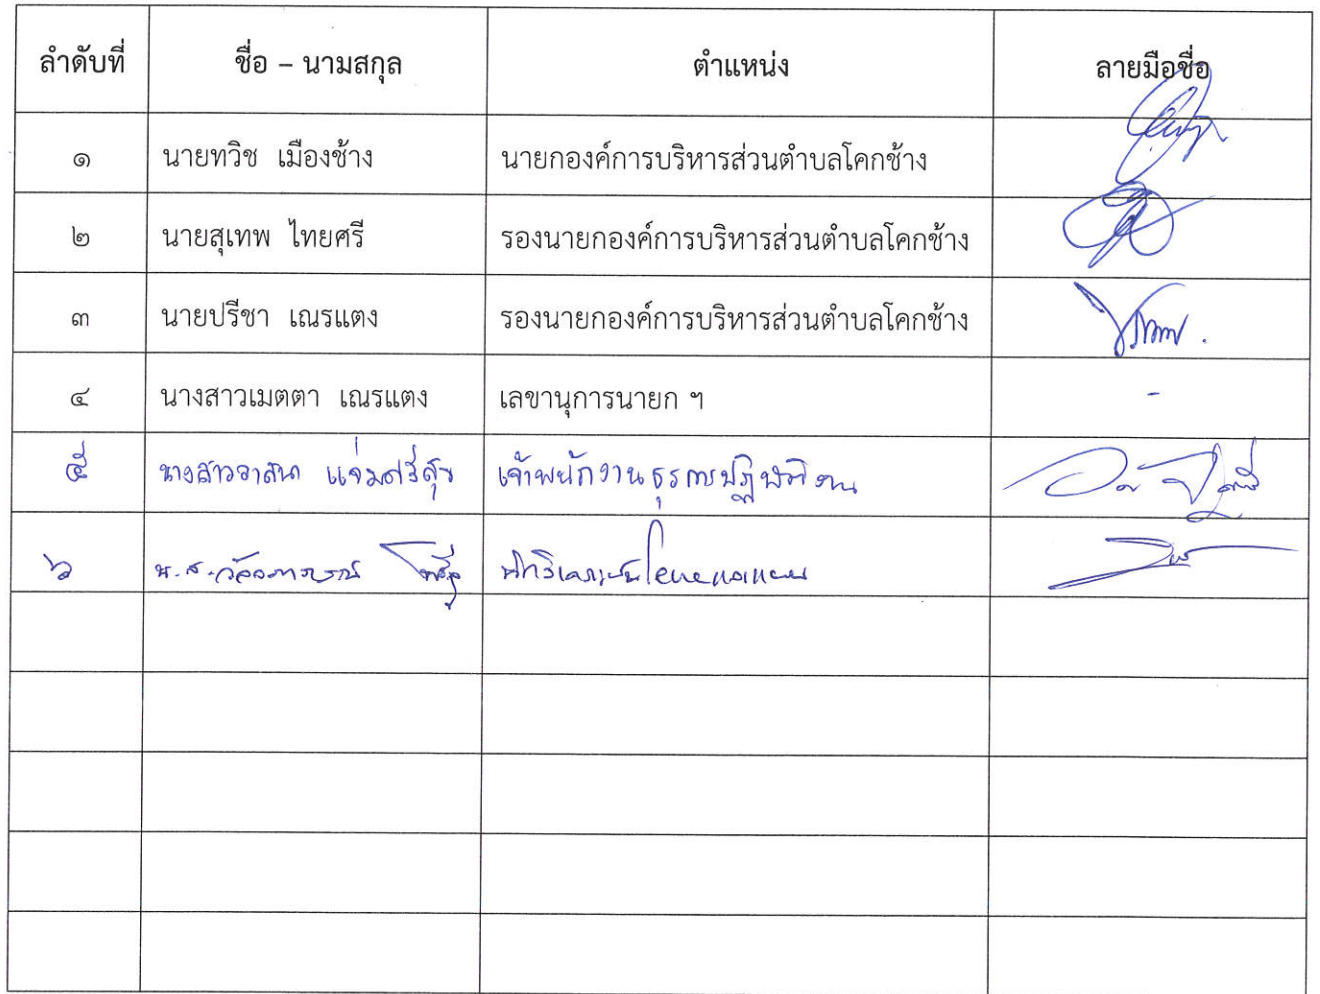 ลำดับที่ ชื่อ – นามสกุล ตำแหน่ง ลายมือชื่อ
๑ นายทวิช เมืองช้าง นายกองค์การบริหารส่วนตำบลโคกช้าง
๒ นายสุเทพ ไทยศรี รองนายกองค์การบริหารส่วนตำบลโคกช้าง
๓ นายปรีชา เณรแตง รองนายกองค์การบริหารส่วนตำบลโคกช้าง
๔ นางสาวเมตตา เณรแตง เลขานุการนายก ฯ -
๕ นางสาวอาสนา แจ่มศรีสุข เจ้าพนักงานธุรการปฏิบัติงาน
๖ น.ส. นักวิเคราะห์นโยบายและแผน